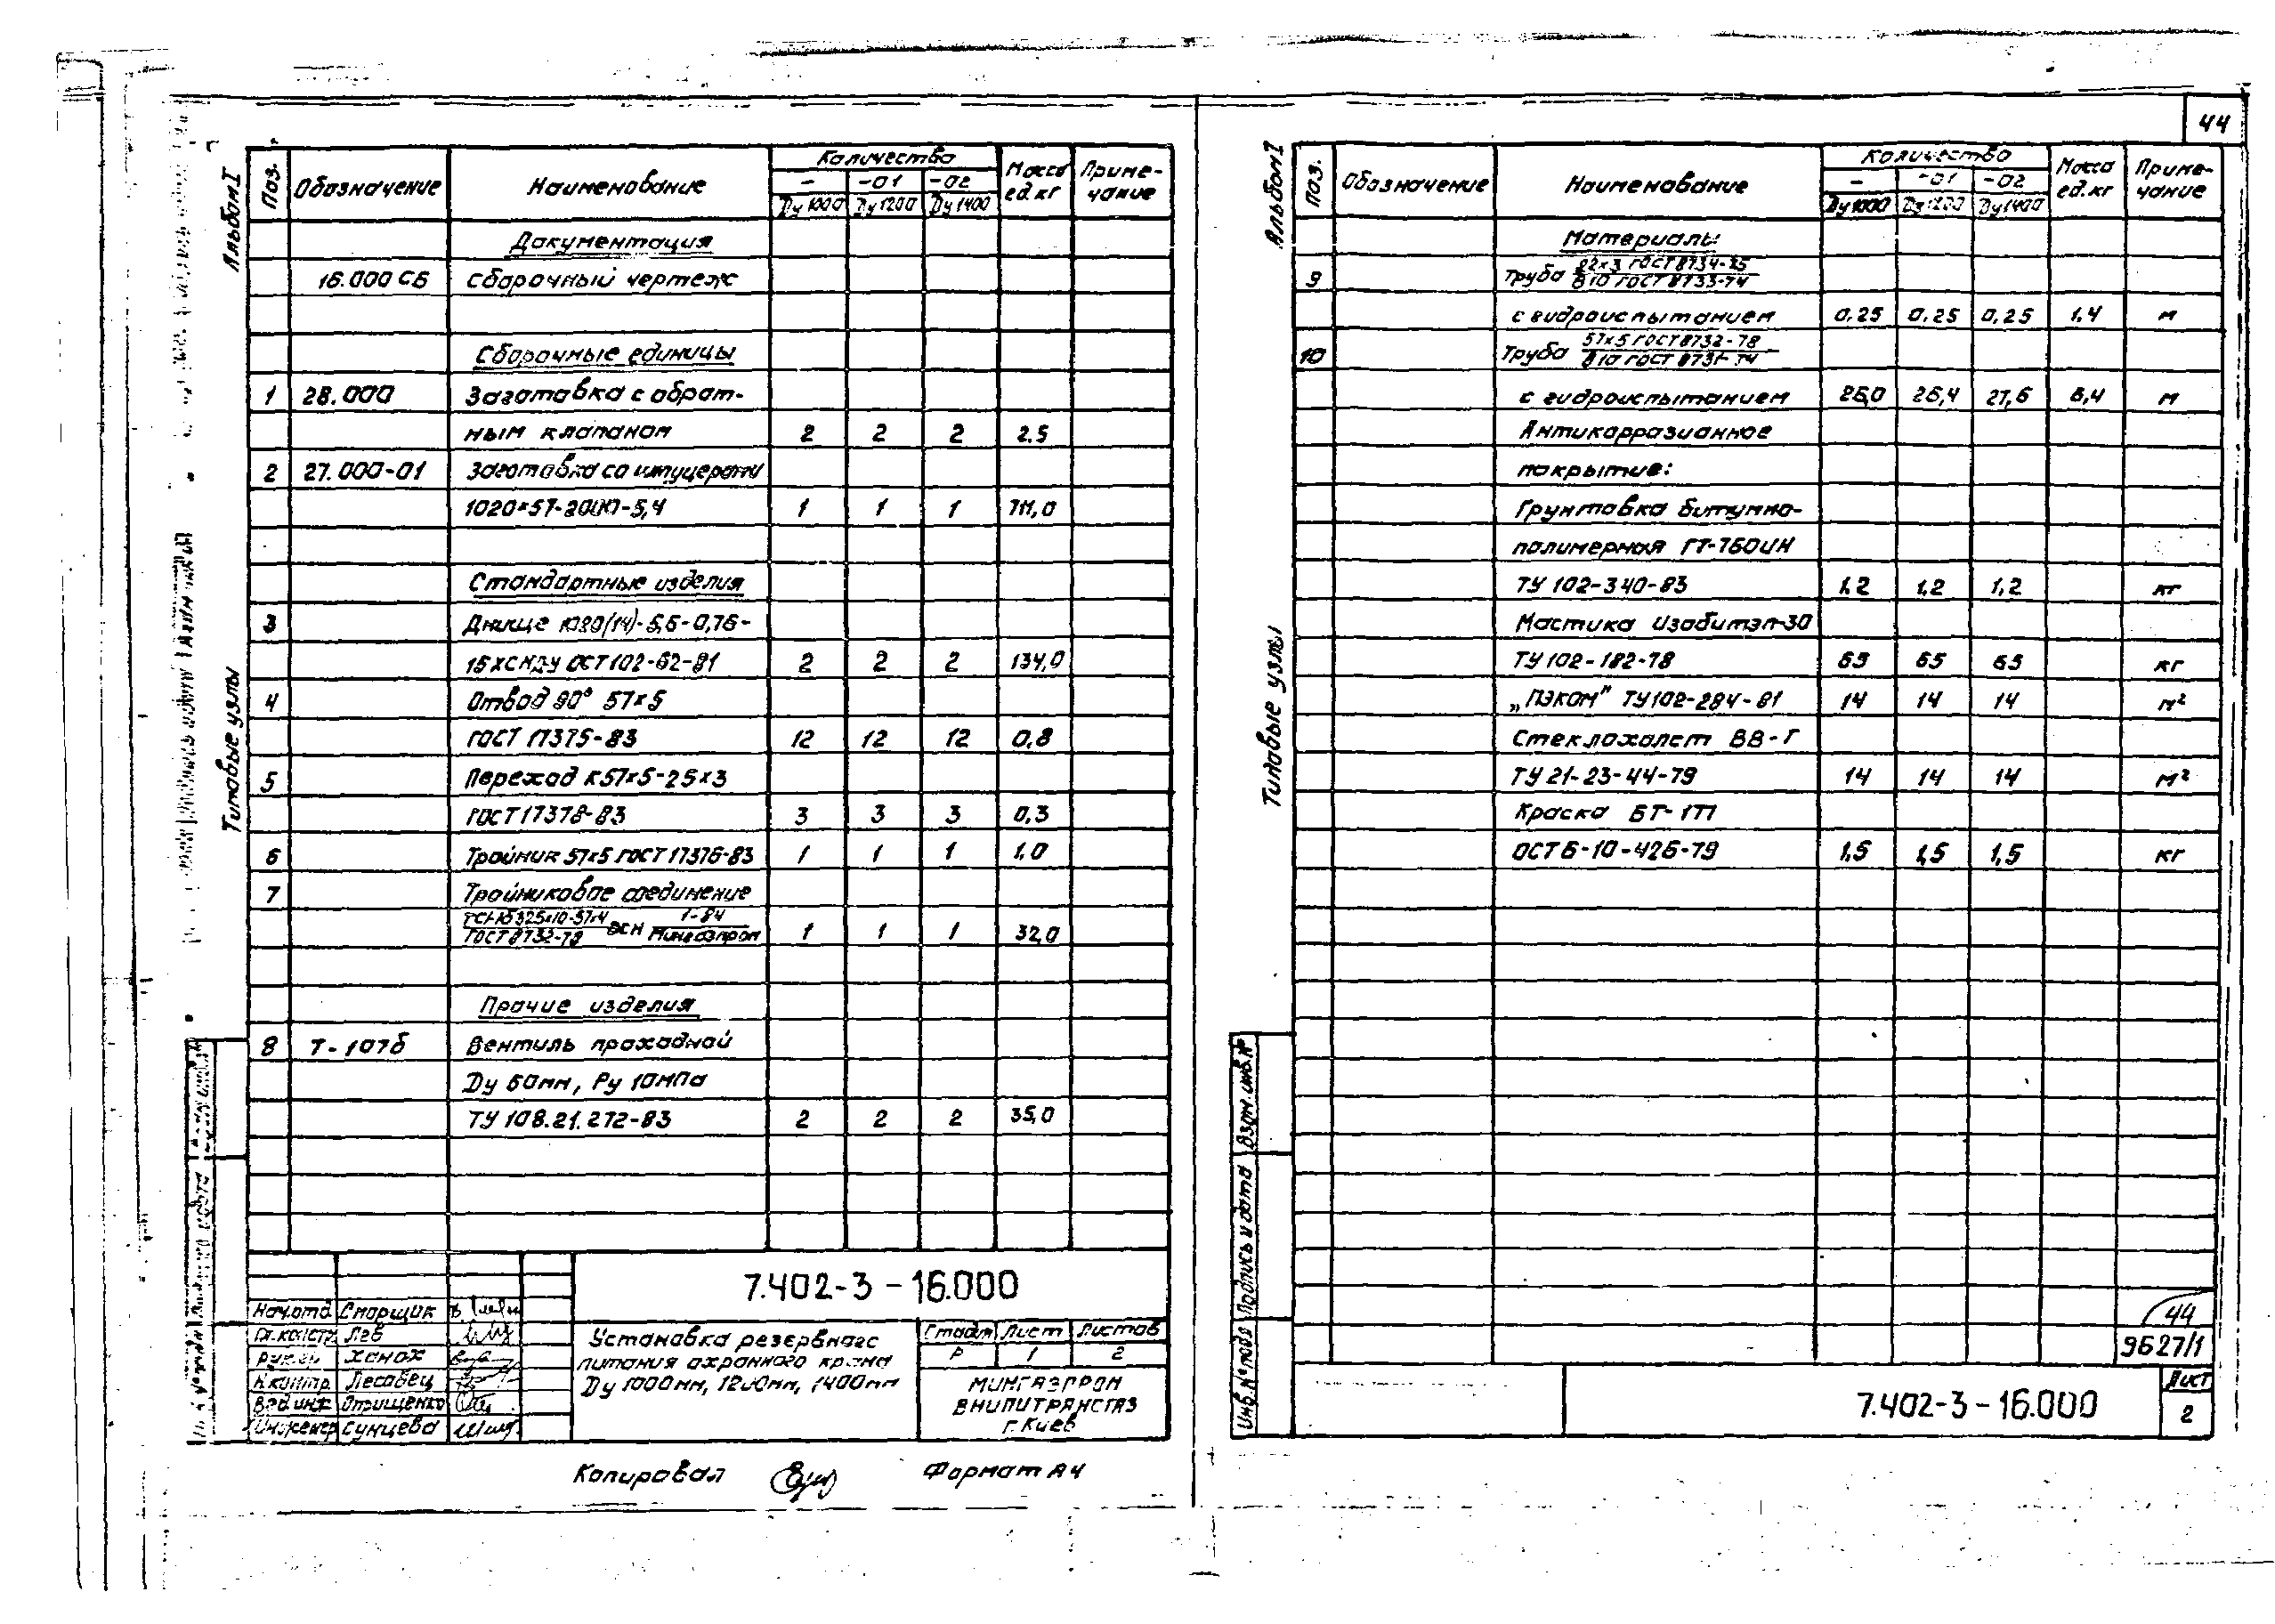 44
Альбом I
Типовые узлы
Поз. Обозначение Наименование Количество Масса ед.кг Приме-чание
- -01 -02
Ду 1000 Ду 1200 Ду 1400
Документация
16.000 СБ Сборочный чертеж
Сборочные единицы
1 28.000 Заготовка с обрат-
ным клапаном 2 2 2 2.5
2 27.000-01 Заготовка со штуцерами
1020×57-2000-5,4 1 1 1 711,0
Стандартные изделия
3 Днище 1020(14)-5,6-0,75-
15ХСНДУ ОСТ 102-62-81 2 2 2 134,0
4 Отвод 90° 57×5
ГОСТ 17375-83 12 12 12 0,8
5 Переход К57×5-25×3
ГОСТ 17378-83 3 3 3 0,3
6 Тройник 57×5 ГОСТ 17376-83 1 1 1 1,0
7 Тройниковое соединение
325×10-57×4 ВСН 1-84
ГОСТ 8732-78 Мингазпром 1 1 1 32,0
Прочие изделия
8 Т-107б Вентиль проходной
Ду 50мм, Ру 10МПа
ТУ 108.21.272-83 2 2 2 35,0
7.402-3-16.000
Нач.отд Спорщик
Гл.констр. Лев
Рук.гр Ханох
Н.контр. Лесовец
Вед.инж Отрищенко
Инженер Сунцева
Установка резервного
питания охранного крана
Ду 1000мм, 1200мм, 1400мм
Стадия Лист Листов
Р 1 2
МИНГАЗПРОМ
ВНИПИТРАНСГАЗ
г. Киев
Копировал
Формат А4
Альбом I
Типовые узлы
Поз. Обозначение Наименование Количество Масса ед.кг Приме-чание
- -01 -02
Ду 1000 Ду 1200 Ду 1400
Материалы
9 Труба 22×3 ГОСТ 8734-75
В 10 ГОСТ 8733-74
с гидроиспытанием 0,25 0,25 0,25 1,4 м
10 Труба 57×5 ГОСТ 8732-78
В 10 ГОСТ 8731-74
с гидроиспытанием 26,0 26,4 27,6 6,4 м
Антикоррозионное
покрытие:
Грунтовка битумно-
полимерная ГТ-760ИН
ТУ 102-340-83 1,2 1,2 1,2 кг
Мастика Изобитэп-30
ТУ 102-182-78 65 65 65 кг
„ПЭКОМ" ТУ 102-284-81 14 14 14 м²
Стеклохолст ВВ-Г
ТУ 21-23-44-79 14 14 14 м²
Краска БТ-177
ОСТ 6-10-426-79 1,5 1,5 1,5 кг
Взам.инв.№
Подпись и дата
Инв.№ подл
44
9627/1
7.402-3-16.000
Лист
2